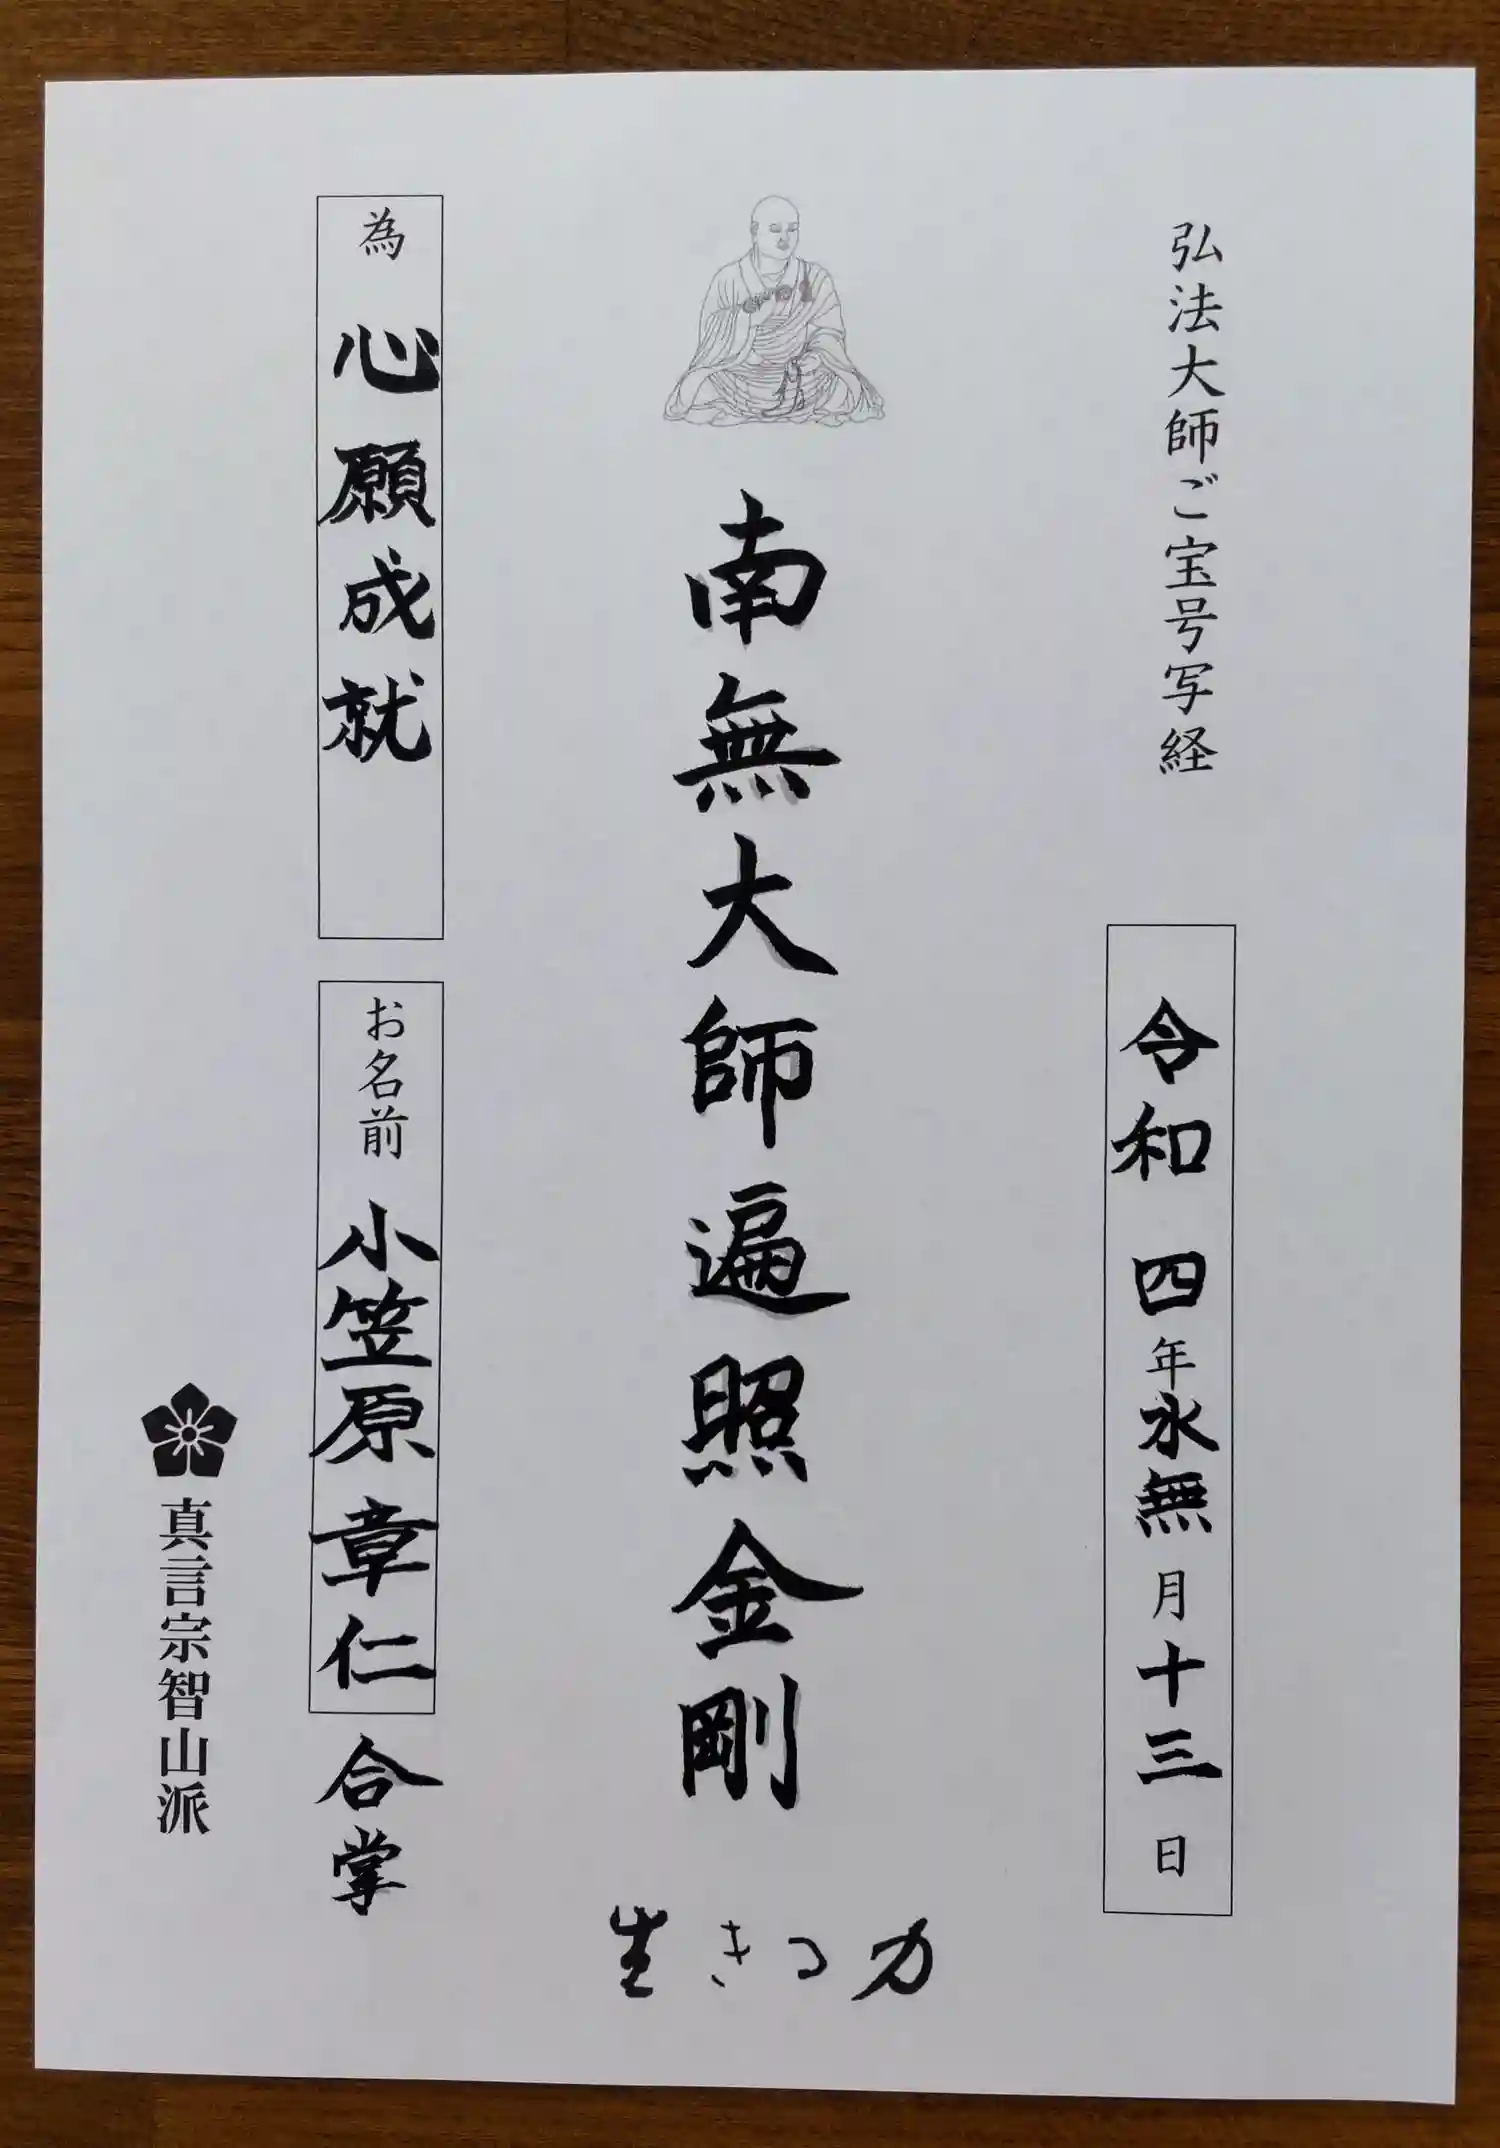 弘法大師ご宝号写経
令和 四年水無月十三日
南無大師遍照金剛
生きる力
為 心願成就
お名前 小笠原章仁 合掌
真言宗智山派